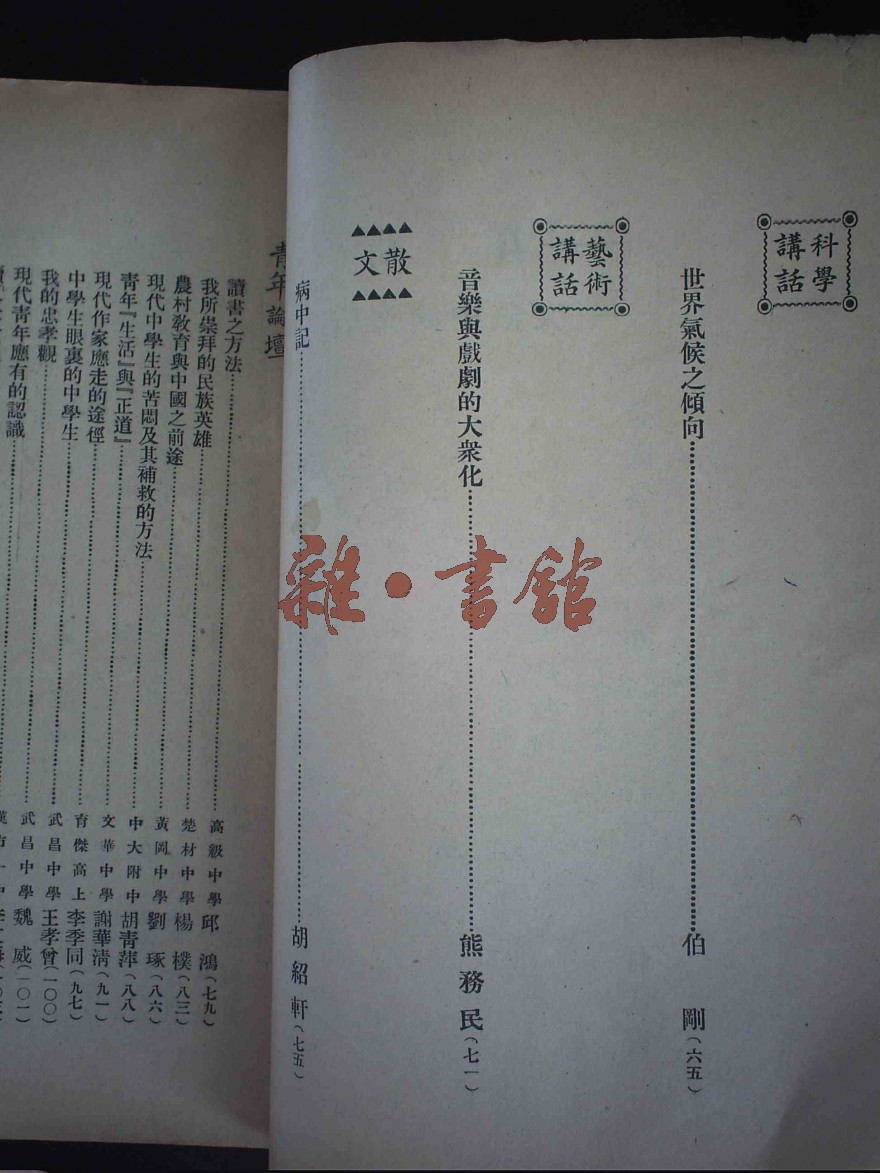 科學講話
世界氣候之傾向 伯剛(六五)
藝術講話
音樂與戲劇的大衆化 熊務民(七一)
散文
病中記 胡紹軒(七五)
青年論壇
讀書之方法 高級中學 邱鴻(七九)
我所崇拜的民族英雄 楚材中學 楊樸(八三)
農村教育與中國之前途 黃岡中學 劉琢(八六)
現代中學生的苦悶及其補救的方法 中大附中 胡青萍(八八)
青年『生活』與『正道』 文華中學 謝華清(九一)
現代作家應走的途徑 育傑高上 李季同(九七)
中學生眼裏的中學生 武昌中學 王孝曾(一〇〇)
我的忠孝觀 武昌中學 魏威(一〇一)
現代青年應有的認識
雜·書館